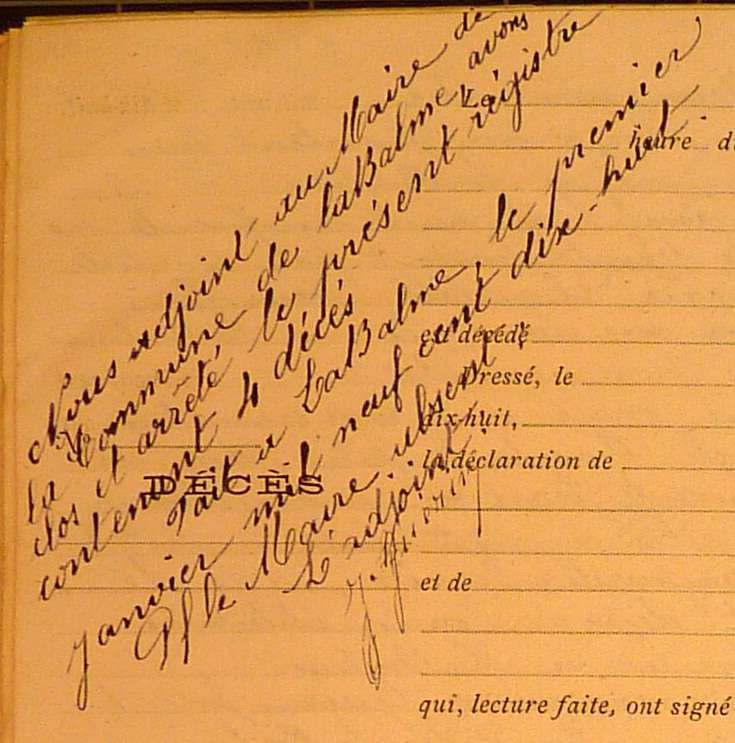 Nous adjoint au Maire de
la Commune de LaBalme, avons
clos et arrêté le présent régistre
contenant 4 décés
Fait a LaBalme, le premier
janvier mil neuf cent dix-huit.
Pr le Maire absent;
L'adjoint.
heure d
est décédé
Dressé, le
dix-huit,
la déclaration de
DÉCÈS
et de
qui, lecture faite, ont signé